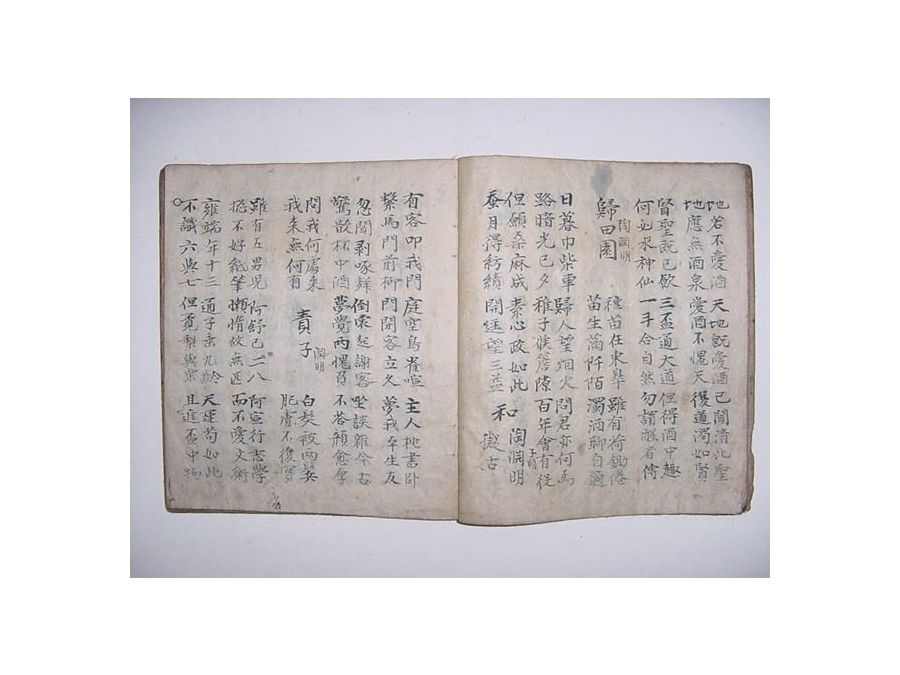 地若不愛酒 天地旣愛酒 已聞清比聖
地應無酒泉 愛酒不愧天 復道濁如賢
賢聖旣已飮 三盃通大道 但得酒中趣
何必求神仙 一斗合自然 勿謂醒者傳
歸田園 陶淵明 種苗在東皐 雖有荷鋤倦
苗生滿阡陌 濁酒聊自適
日暮巾柴車 歸人望烟火 問君亦何爲
路暗光已夕 稚子候簷隙 百年會有役
但願桑麻成 素心政如此 和 陶淵明
蚕月得紡績 開逕望三益 擬古
有客叩我門 庭空鳥雀喧 主人枕書臥
繫馬門前柳 門閉客立久 夢我平生友
忽聞剥啄聲 倒裳起謝客 坐談雜今古
驚散杯中酒 夢覺兩愧負 不答顔愈厚
問我何處來 責子 淵明 白髮被兩鬢
我來無何有 肥膚不復實
雖有五男児 阿舒已二八 阿宣行志學
摠不好紙筆 懶惰故無匹 而不愛文術
雍端年十三 通子垂九齡 天運苟如此
不識六與七 但覓梨與栗 且進盃中物